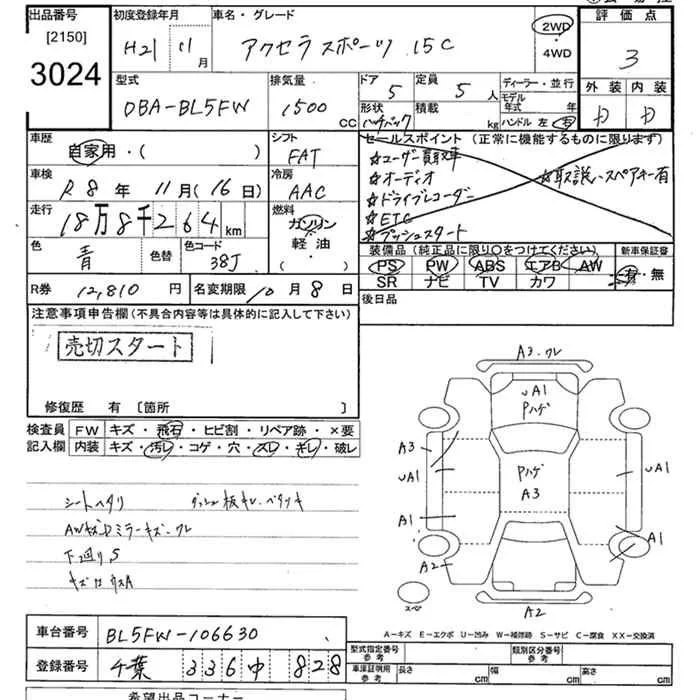 出品番号
[2150]
3024
初度登録年月
H21 11月
車名・グレード
アクセラスポーツ 15C
2WD
・
4WD
評価点
3
型式
DBA-BL5FW
排気量
1500 CC
ドア
5
定員
5人
形状
ハッチバック
積載
kg
ディーラー・並行
モデル
年式 年
ハンドル 左・右
外装 内装
車歴
自家用・( )
シフト
FAT
車検
R8年 11月(16日)
冷房
AAC
走行
18万8千264km
燃料
ガソリン
軽油
( )
色
青
色替
色コード
38J
セールスポイント (正常に機能するものに限ります)
☆ユーザー買取車
☆オーディオ
☆ドライブレコーダー
☆ETC
☆プッシュスタート
☆取説、スペアキー有
装備品(純正品に限り○をつけてください)
新車保証書
PS PW ABS エアB AW
SR ナビ TV カワ
有・無
R券 12,810円
名変期限 10月8日
後日品
注意事項申告欄(不具合内容等は具体的に記入して下さい)
売切スタート
修復歴 有 [箇所 ]
検査員
記入欄
FW キズ・飛石・ヒビ割・リペア跡・×要
内装 キズ・汚レ・コゲ・穴・スレ・キレ・破レ
シートヘタリ
ダッシュ板キレ・ベタツキ
AWキズ Dミラーキズ・ワレ
下廻りS
A3・ワレ
UA1
Pハゲ
A3
UA1
A1
A2
Pハゲ
A3
UA1
A1
A2
スペア
A-キズ E-エクボ U-凹み W-補修跡 S-サビ C-腐食 XX-交換済
車台番号 BL5FW-106630
登録番号 千葉 336 中 828
型式指定番号
参考
類別区分番号
参考
車庫証明用
参考
長さ cm
幅 cm
高さ cm
希望出品コーナー